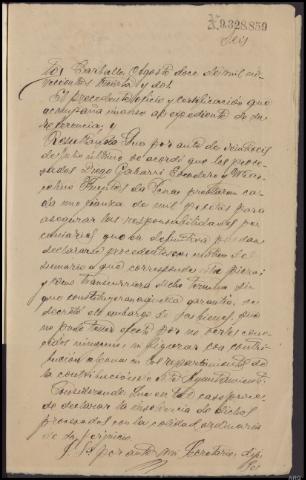 N 9.328.859
Seis
Carballo, Agosto doce de mil no-
vecientos treinta y dos.
El precedente oficio y certificación que
acompaña únanse al expediente de su
referencia; y
Resultando: Que por auto de veintiseis
de Julio último se acordó que los proce-
sados Diego Gabarri Escudero y
prestaran ca-
da uno fianza de mil pesetas para
asegurar las responsabilidades pe-
cuniarias que en definitiva puedan
declararse procedentes con motivo del
sumario a que corresponde esta pieza;
y como transcurriera dicho término sin
que constituyeran aquella garantía, se
decretó el embargo de sus bienes, que
no pudo tener efecto por no serles cono-
cidos ningunos ni figurar con contri-
bución alguna en el repartimiento de
la contribución de este Ayuntamiento.
Considerando: Que en tal caso proce-
de declarar la insolvencia de dichos
procesados con la calidad ordinaria
de sin perjuicio.
S. Sª por ante mi Secretario dijo: